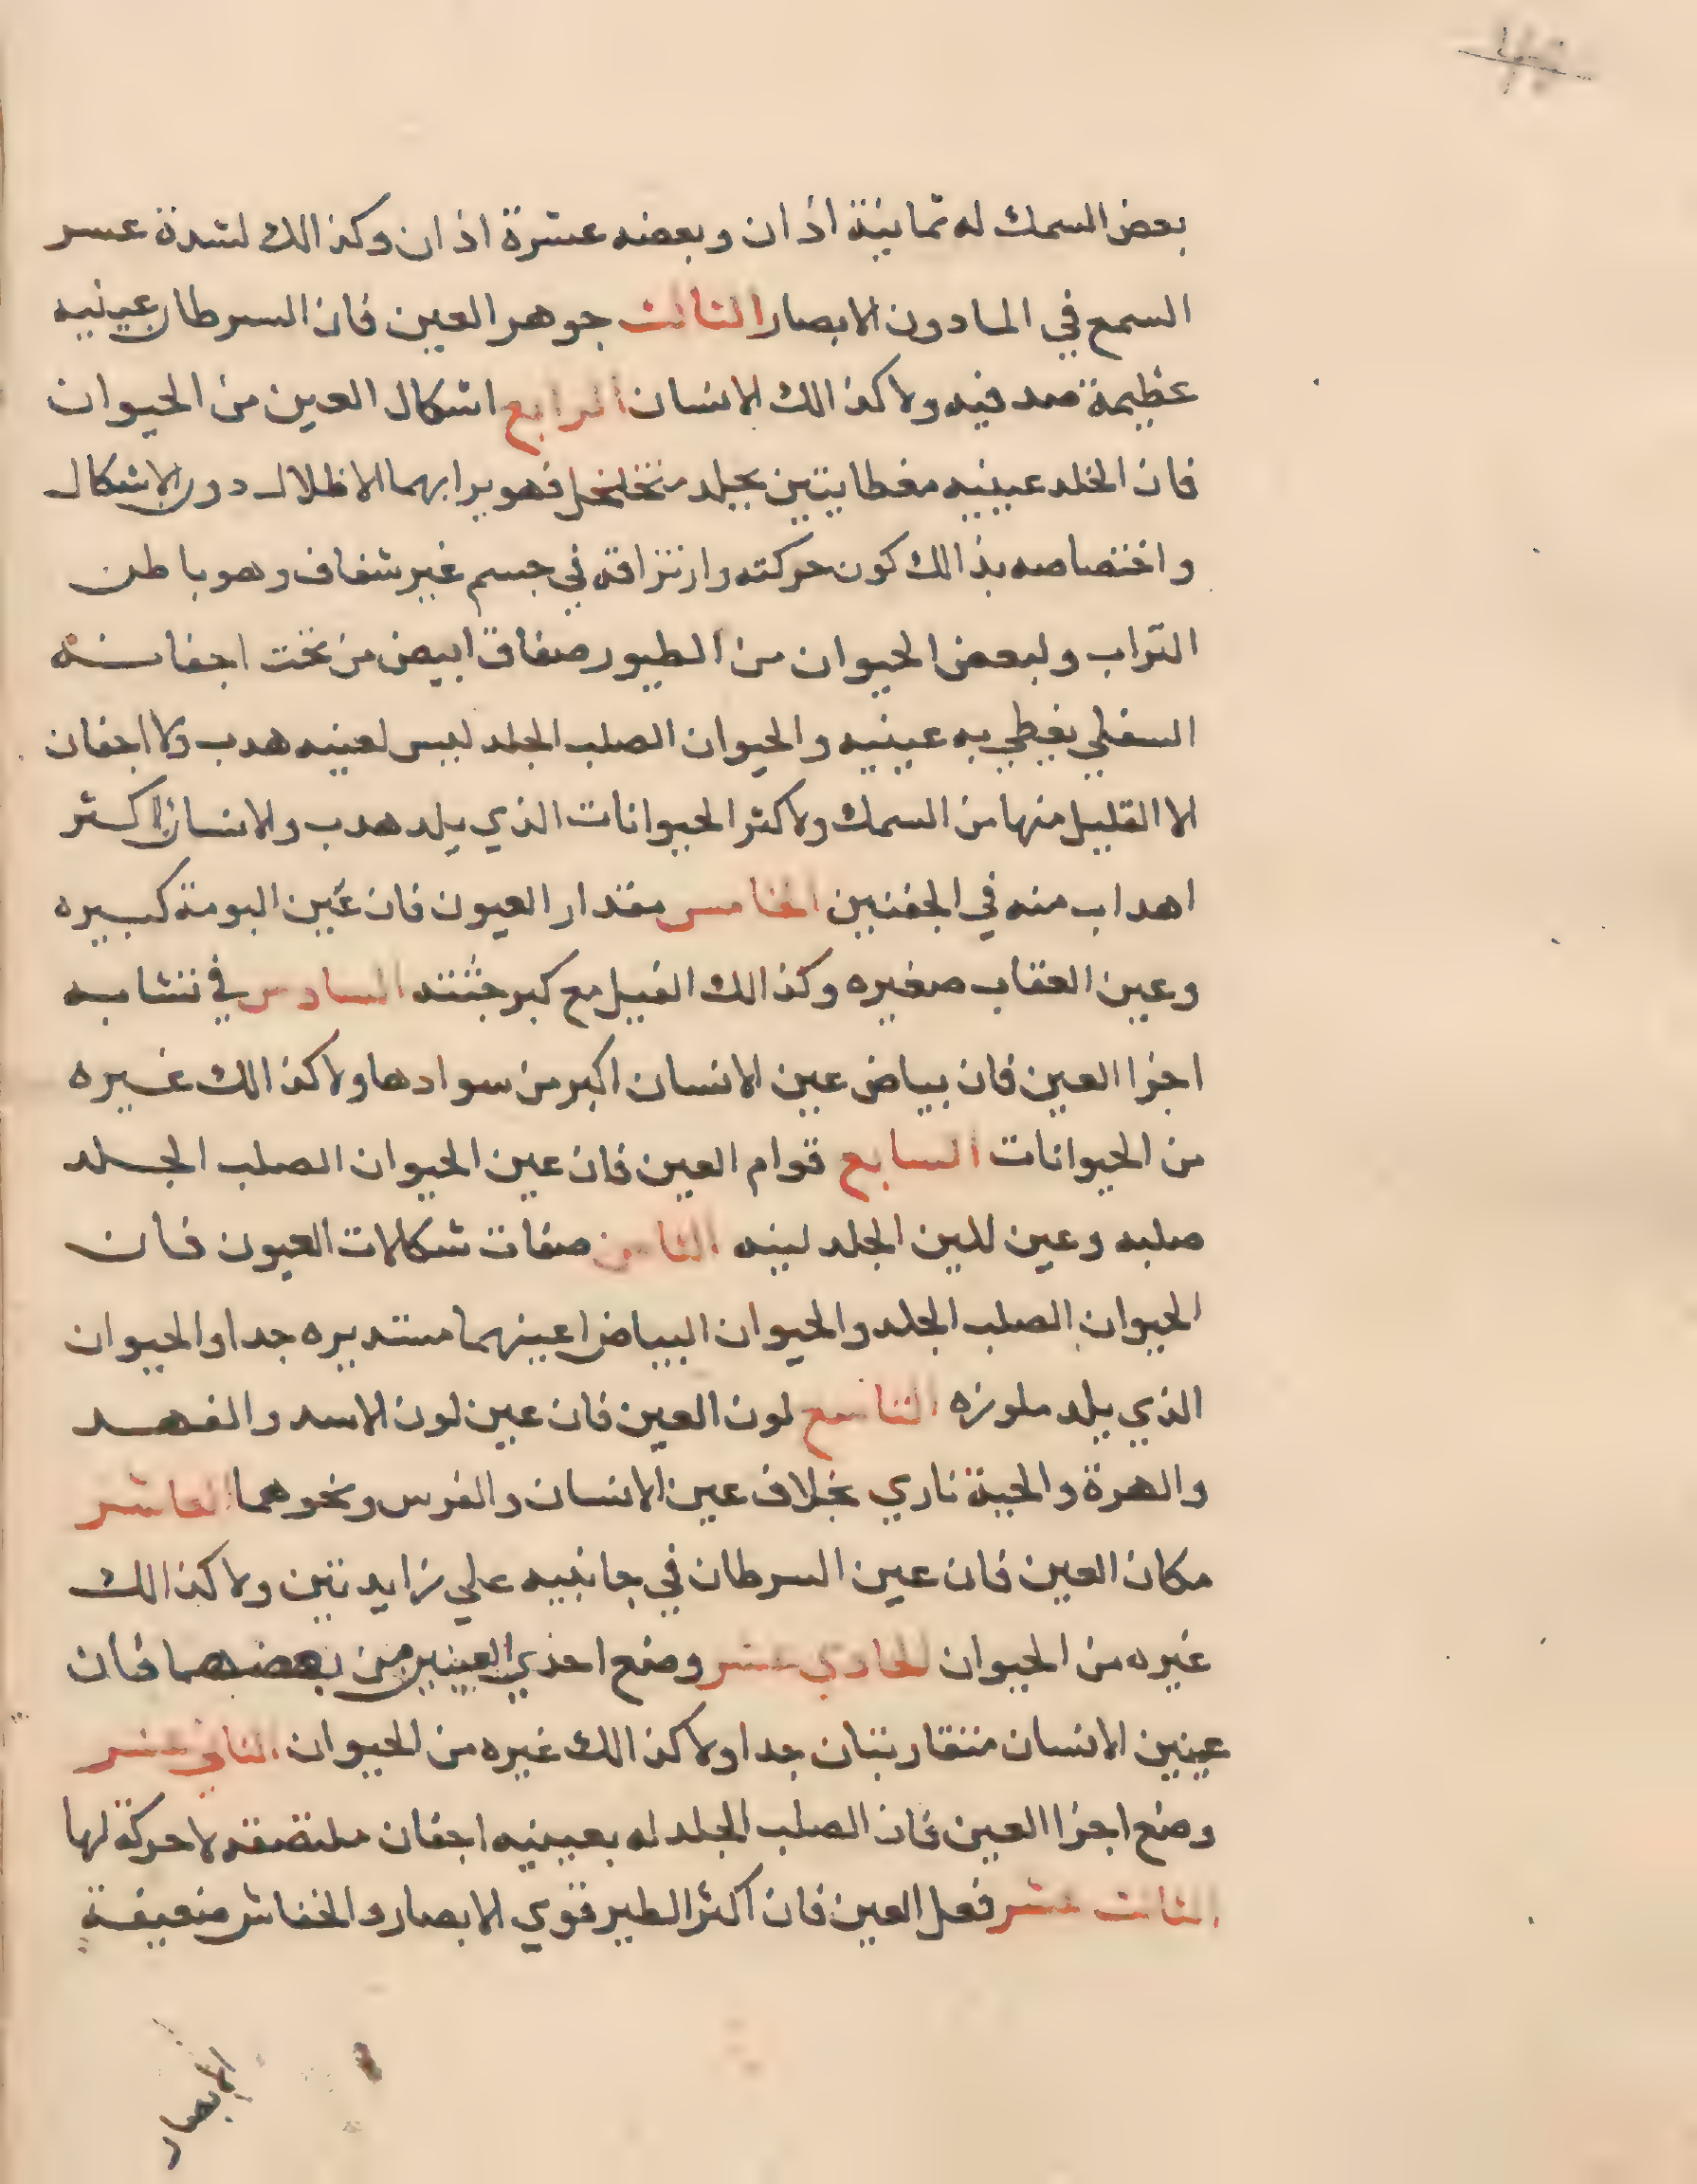 بعض السمك له ثمانية اذان وبعضه عشرة اذان وكذالك لشدة عسر
السمع في الما دون الابصار الثالث جوهر العين فان السرطان عينيه
عظيمة صدفيه ولا كذالك الانسان الرابع اشكال العين من الحيوان
فان الخلد عينيه مغطايتين بجلد متخلخل فهو يرا بهما الاظلال دون الاشكال
واختصاصه بذالك كون حركته وارتزاقه في جسم غير شفاف وهو باطن
التراب ولبعض الحيوان من الطيور صفاق ابيض من تحت اجفانه
السفلي يغطي به عينيه والحيوان الصلب الجلد ليس لعينه هدب ولا اجفان
الا القليل منها من السمك ولاكثر الحيوانات الذي يلد هدب والانسان اكثر
اهداب منه في الجفنين الخامس مقدار العيون فان عين البومة كبيره
وعين العقاب صغيره وكذالك الفيل مع كبر جثته السادس في تشابه
اجزا العين فان بياض عين الانسان اكبر من سوادها ولا كذالك غيره
من الحيوانات السابع قوام العين فان عين الحيوان الصلب الجلد
صلبه وعين اللين الجلد لينه الثامن صفات شكالات العيون فان
الحيوان الصلب الجلد والحيوان البياض اعينهما مستديره جدا والحيوان
الذي يلد ملوزه التاسع لون العين فان عين لون الاسد والفهد
والهرة والحية ناري بخلاف عين الانسان والفرس ونحوهما العاشر
مكان العين فان عين السرطان في جانبيه علي زايدتين ولا كذالك
غيره من الحيوان الحادي عشر وضع احدي العينين من بعضهما فان
عينين الانسان متقاربتان جدا ولا كذالك غيره من الحيوان الثاني عشر
وضع اجزا العين فان الصلب الجلد له بعينيه اجفان ملتصقه لا حركة لها
الثالث عشر فعل العين فان اكثر الطير قوي الابصار والخفاش ضعيفة
الابصار